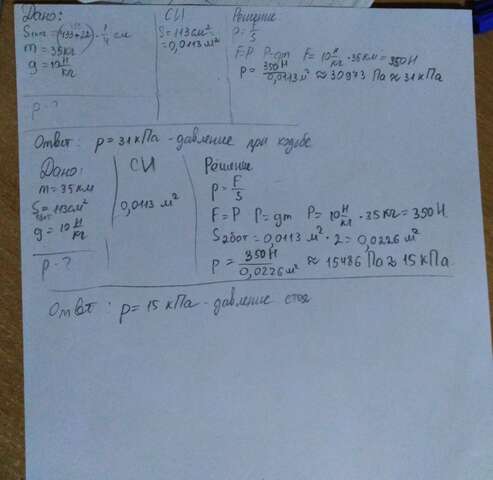 Дано:
m = 35кг
g = 10 Н/кг
p - ?
СИ
S = 113см²=
= 0,0113 м²
Решение
p = F/S
F=P P=gm F = 10 Н/кг · 35км = 350Н
p = 350Н/0,0113м² ≈ 30973 Па ≈ 31кПа
Ответ: p = 31кПа - давление при ходьбе
Дано:
m = 35км
S = 113см²
g = 10 Н/кг
p - ?
СИ
0,0113 м²
Решение
p = F/S
F = P P = gm P = 10 Н/кг · 35кг = 350Н
S2бот = 0,0113м² · 2 = 0,0226м²
p = 350Н/0,0226м² ≈ 15486 Па ≈ 15 кПа
Ответ: p = 15 кПа - давление стоя